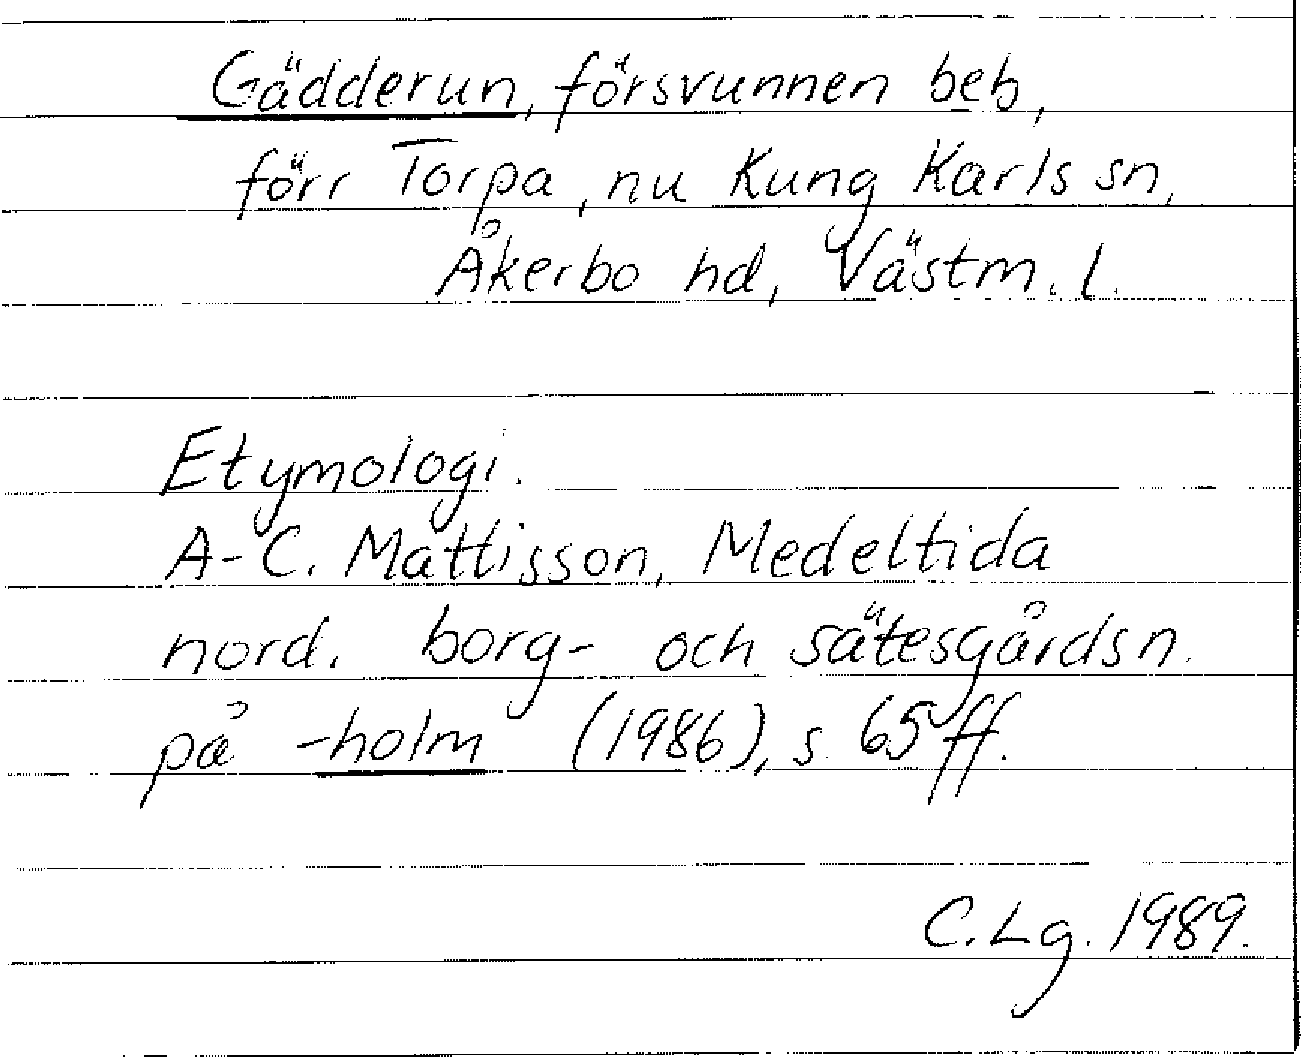 Gädderun, försvunnen beb,
förr Torpa, nu Kung Karls sn,
Åkerbo hd, Västm. l.
Etymologi.
A-C. Mattisson, Medeltida
nord. borg- och sätesgårdsn.
på -holm (1986), s. 65 ff.
C. Lg. 1989.